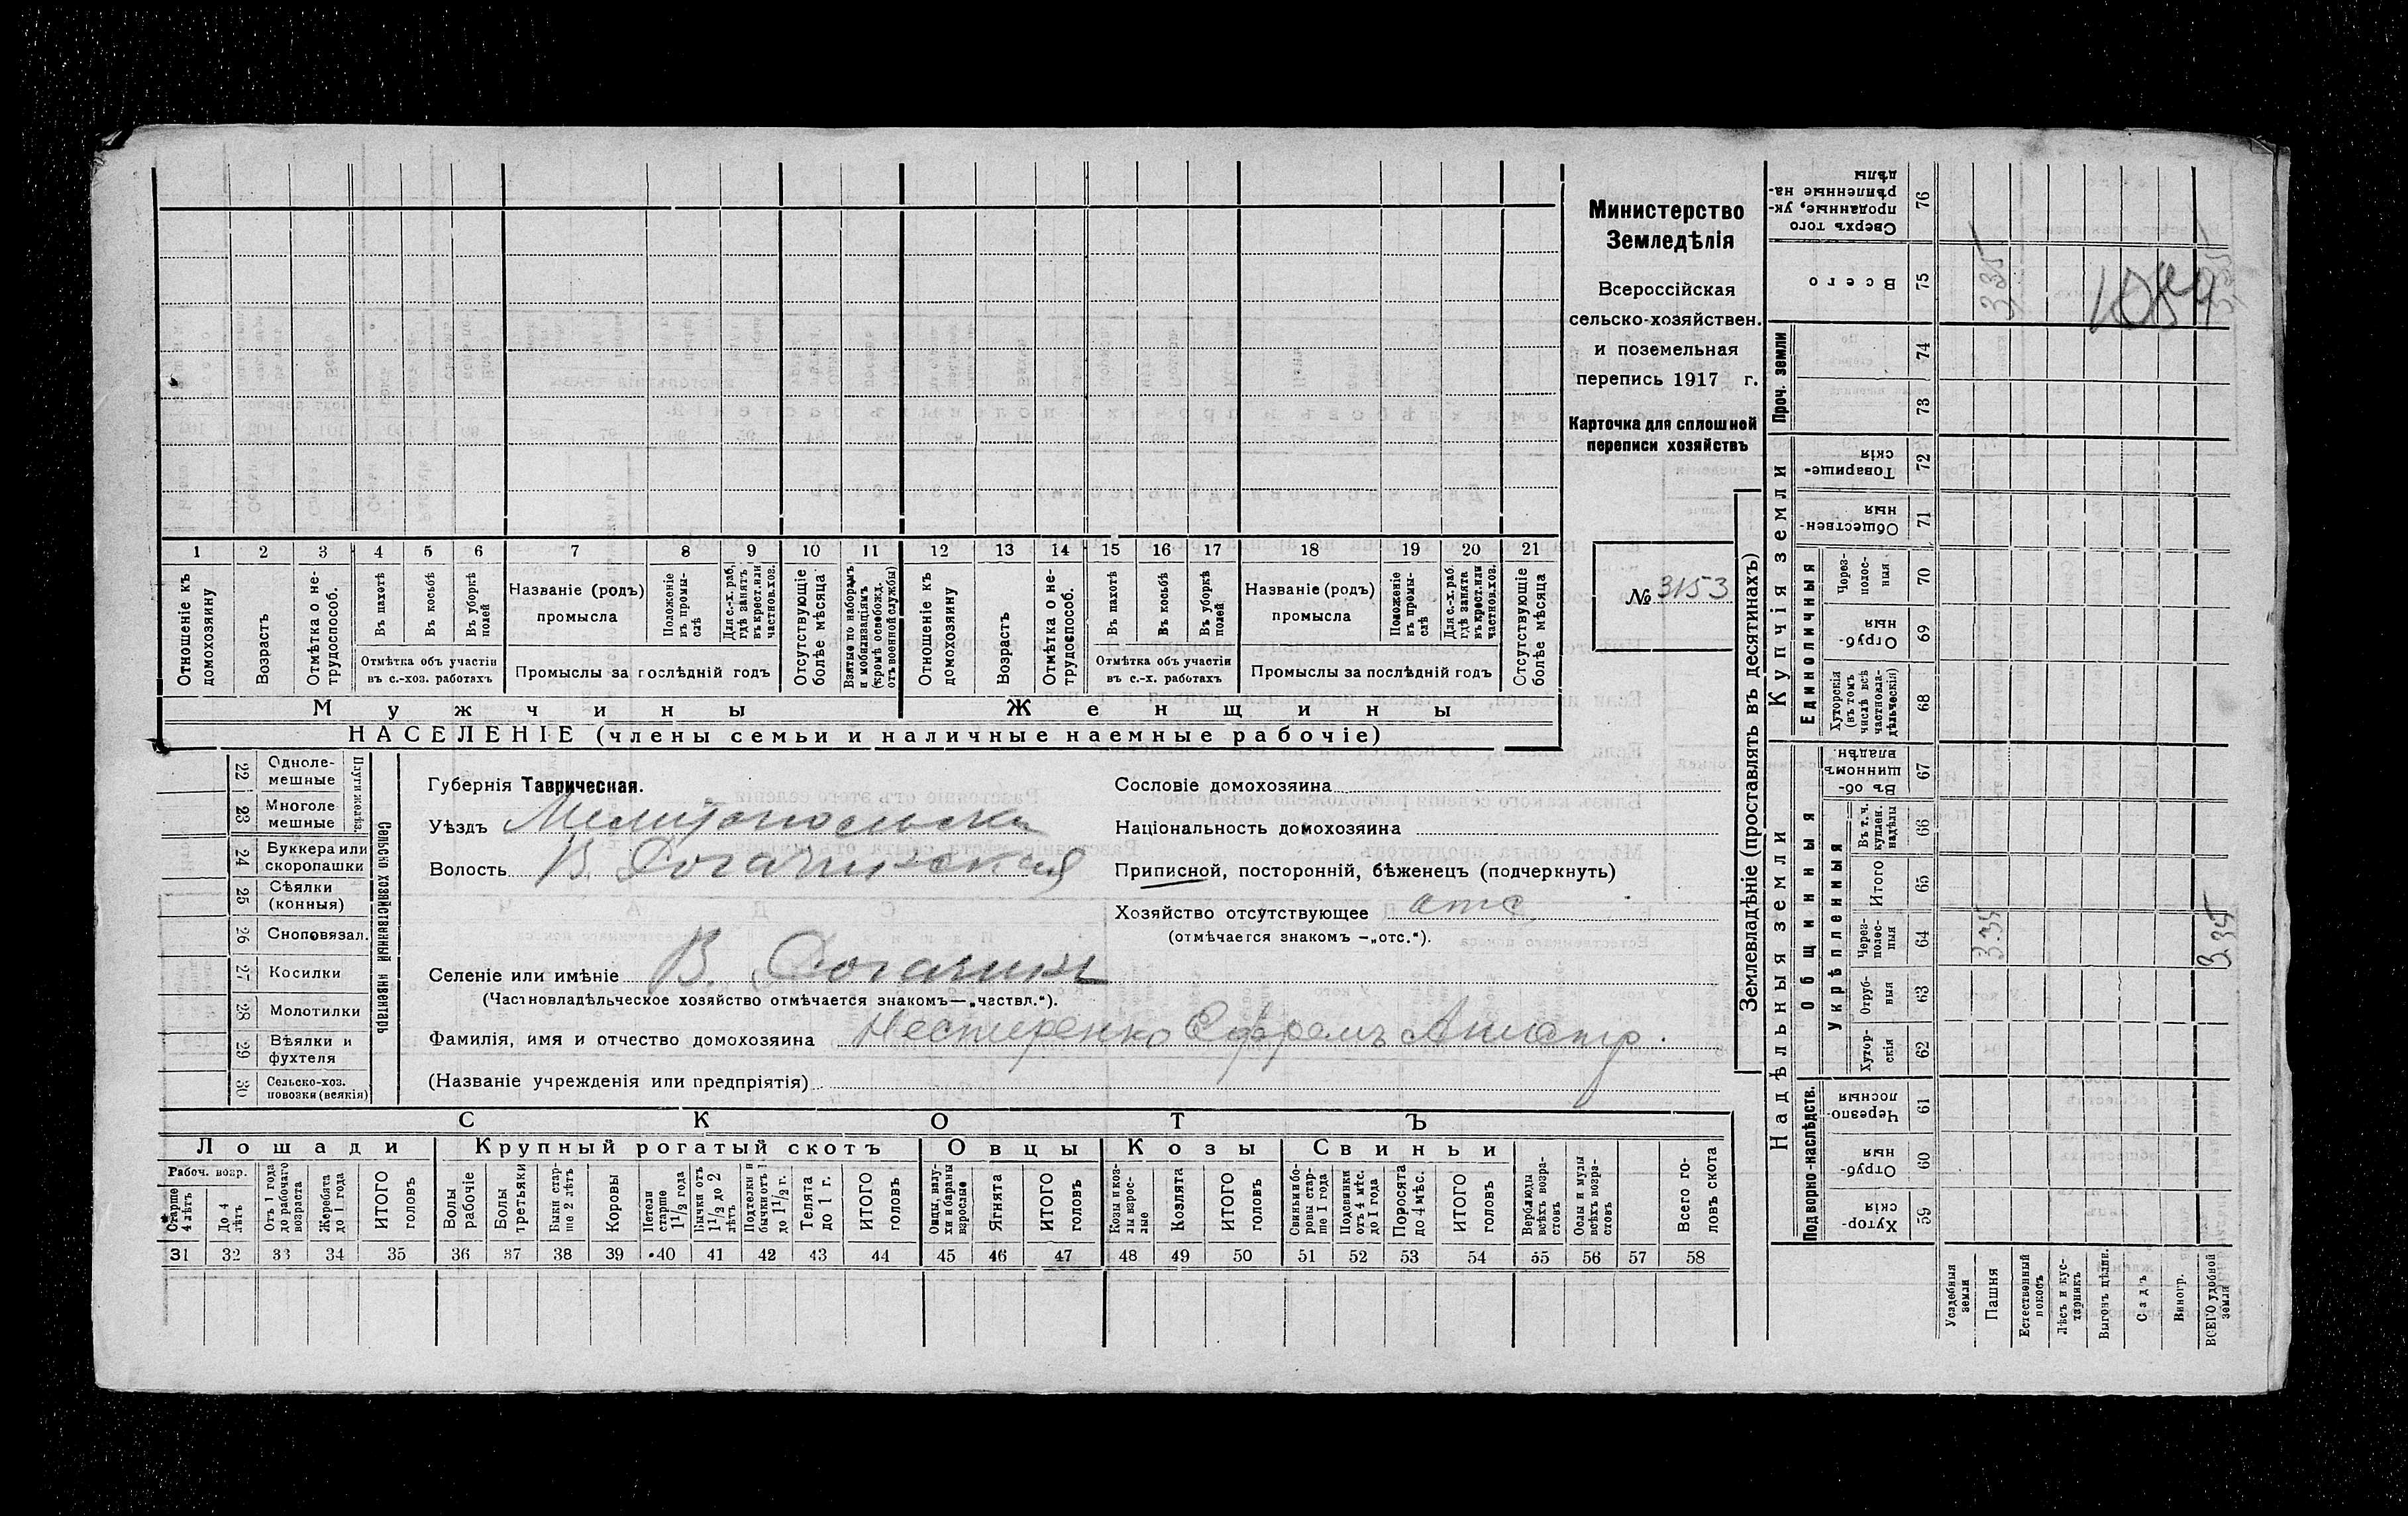 1 2 3 4 5 6 7 8 9 10 11 12 13 14 15 16 17 18 19 20 21
Отношеніе къ домохозяину
Возрастъ
Отмѣтка о не-трудоспособ.
Въ пахотѣ
Въ косьбѣ
Въ уборкѣ полей
Отмѣтка объ участіи
въ с.-хоз. работахъ
Названіе (родъ)
промысла
Положеніе въ промы-слѣ
Для с.-х. раб, гдѣ занятъ въ крест. или частнов. хоз.
Промыслы за послѣдній годъ
Отсутствующіе болѣе мѣсяца
Взятые по наборамъ и мобилизаціямъ (кромѣ освобожд. отъ военной службы)
Отношеніе къ домохозяину
Возрастъ
Отмѣтка о не-трудоспособ.
Въ пахотѣ
Въ косьбѣ
Въ уборкѣ полей
Отмѣтка объ участіи
въ с.-х. работахъ
Названіе (родъ)
промысла
Положеніе въ промы-слѣ
Для с.-х. раб. гдѣ занята въ крест. или частнов. хоз.
Промыслы за послѣдній годъ
Отсутствующіе болѣе мѣсяца
Мужчины Женщины
НАСЕЛЕНІЕ (члены семьи и наличные наемные рабочіе)
Министерство
Земледѣлія
Всероссійская
сельско-хозяйствен.
и поземельная
перепись 1917 г.
Карточка для сплошной
переписи хозяйствъ
№ 3153
Сельско хозяйственный инвентарь
Плуги желѣз.
22 Одноле-мешные
23 Многоле мешные
24 Буккера или скоропашки
25 Сѣялки (конныя)
26 Сноповязал.
27 Косилки
28 Молотилки
29 Вѣялки и фухтеля
30 Сельско-хоз. повозки (всякія)
Губернія Таврическая.
Уѣздъ Мелитопольски
Волость В. Рогачикская
Селеніе или имѣніе В. Рогачикъ
(Частновладѣльческое хозяйство отмѣчается знакомъ—„частвл.“).
Фамилія, имя и отчество домохозяина Нестеренко Ефремъ
(Названіе учрежденія или предпріятія)
Сословіе домохозяина
Національность домохозяина
Приписной, посторонній, бѣженецъ (подчеркнуть)
Хозяйство отсутствующее отс
(отмѣчается знакомъ —„отс.“).
СКОТЪ
Лошади Крупный рогатый скотъ Овцы Козы Свиньи
Рабоч. возр.
Старше 4 лѣтъ
До 4 лѣтъ
Отъ 1 года до рабочаго возраста
Жеребята до 1 года
ИТОГО головъ
Волы рабочіе
Волы третьяки
Быки стар-ше 2 лѣтъ
Коровы
Нетели старше 1 1/2 года
Бычки отъ 1 1/2 до 2 лѣтъ
Подтелки и бычки отъ 1 до 1 1/2 г.
Телята до 1 г.
ИТОГО головъ
Овцы, валу-хи и бараны взрослые
Ягнята
ИТОГО головъ
Козы и коз-лы взрос-лые
Козлята
ИТОГО головъ
Свиньи и бо-ровы стар-ше 1 года
Подсвинки отъ 4 мѣс. до 1 года
Поросята до 4 мѣс.
ИТОГО головъ
Верблюды всѣхъ возра-стовъ
Ослы и мулы всѣхъ возра-стовъ
Всего го-ловъ скота
31 32 33 34 35 36 37 38 39 40 41 42 43 44 45 46 47 48 49 50 51 52 53 54 55 56 57 58
Землевладѣніе (проставлять въ десятинахъ)
Сверхъ того проданные, ук-рѣпленные на-дѣлы 76
Всего 75 3 35
Проч. земли 74 73
Купчія земли
Товарище-скія 72
Обществен-ныя 71
Единоличныя
Через-полос-ныя 70
Отруб-ныя 69
Хуторскія (въ томъ числѣ всѣ частновла-дѣльческія) 68
Надѣльныя земли
Общинныя
Въ об-щинномъ владѣн. 67
Укрѣпленныя
Въ т. ч. куплен. надѣлы 66
Итого 65
Через-полос-ныя 64 3.35 3.35
Отруб-ныя 63
Хутор-скія 62
Подворно-наслѣдств.
Черезпо-лосныя 61
Отруб-ныя 60
Хутор-скія 59
Усадебныя земли
Пашня
Естественный покосъ
Лѣсъ и кус-тарникъ
Выгонъ цѣлин.
Садъ
Виногр.
ВСЕГО удобной земли